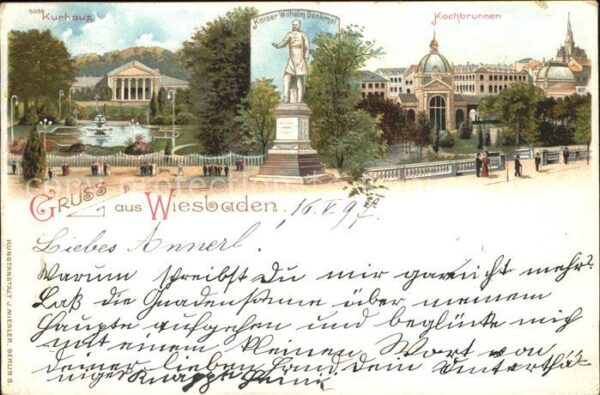 5039
Kurhaus.
Kaiser Wilhelm Denkmal
Kochbrunnen
Gruss aus Wiesbaden.
16.V 97.
Liebes Annerl.
Warum schreibst Du mir garnicht mehr?
Laß die Gnadensonne über meinem
Haupte aufgehen und beglücke mich
mit einem kleinen Wort von
deiner lieben Hand. Dein Unterthä-
niger Knappe
KUNSTANSTALT J. MIESLER, BERLIN S.